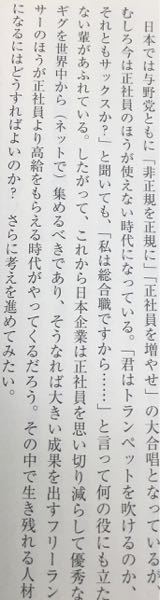 日本では与野党ともに「非正規を正規に」「正社員を増やせ」の大合唱となっているが、
むしろ今は正社員のほうが使えない時代になっている。「君はトランペットを吹けるのか、
それともサックスか？」と聞いても、「私は総合職ですから……」と言って何の役にも立た
ない輩があふれている。したがって、これから日本企業は正社員を思い切り減らして優秀な
ギグを世界中から（ネットで）集めるべきであり、そうなれば大きい成果を出すフリーラン
サーのほうが正社員より高給をもらえる時代がやってくるだろう。その中で生き残れる人材
になるにはどうすればよいのか？　さらに考えを進めてみたい。